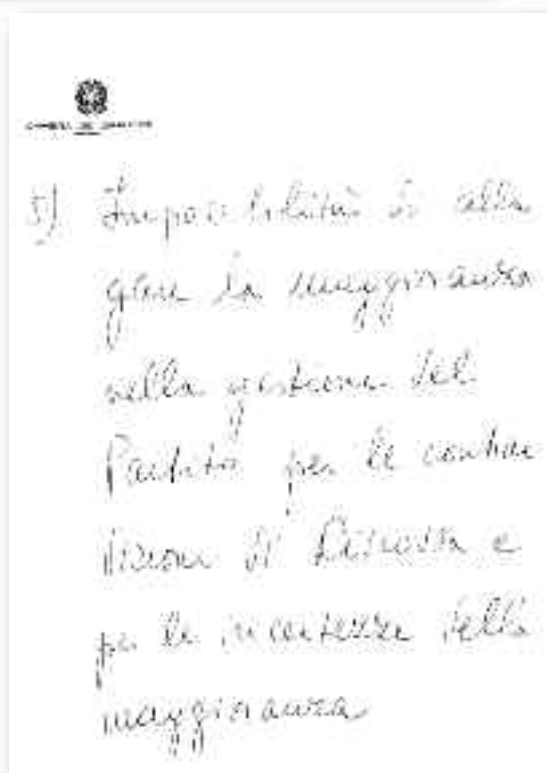 CAMERA DEI DEPUTATI
5) Impossibilità di alla
gare la maggioranza
nella gestione del
Partito per le contrad
dizioni di e
per le incertezze della
maggioranza